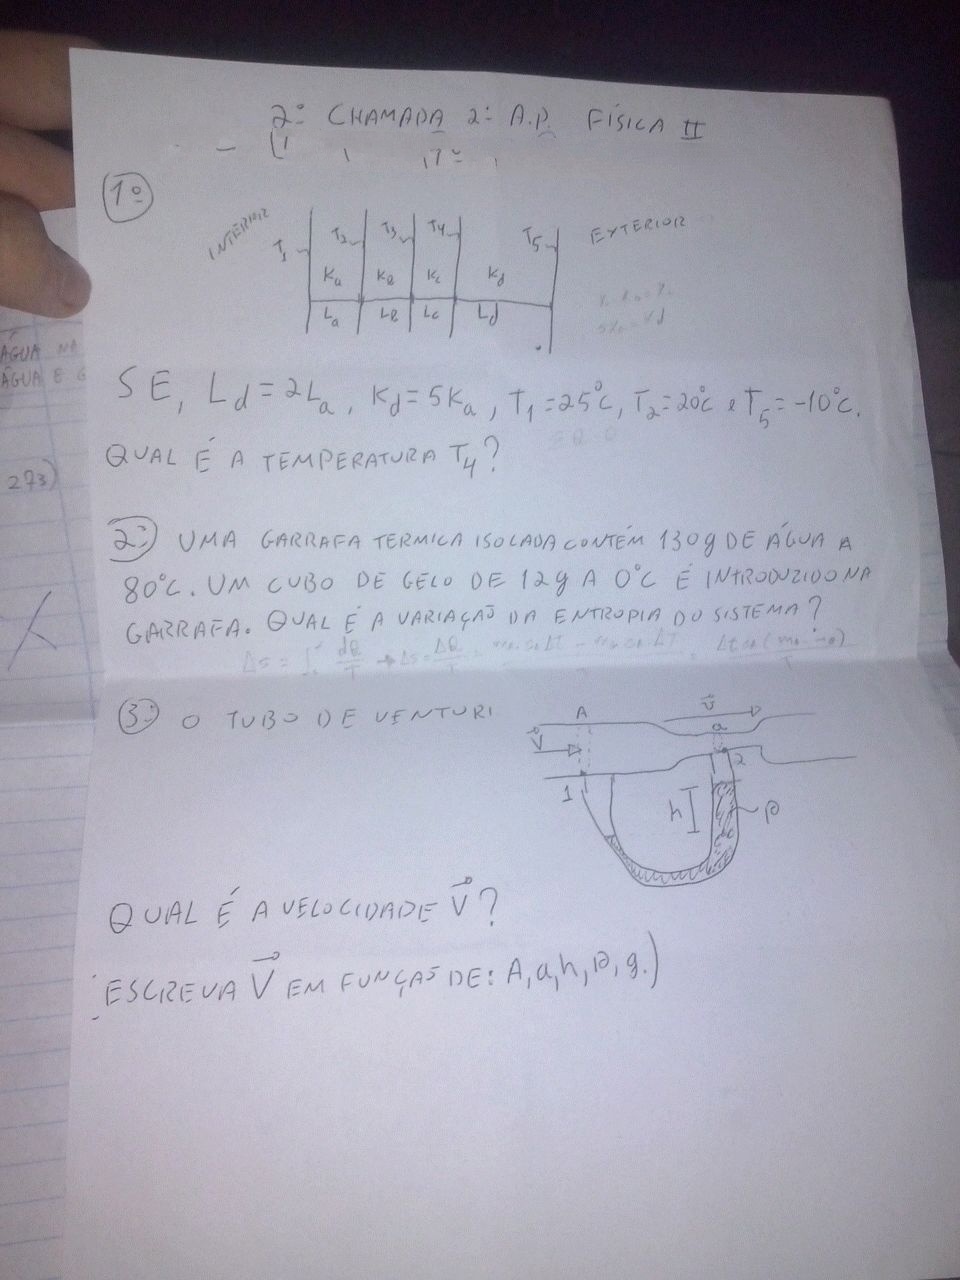 2º CHAMADA 2º A.P. FÍSICA II
1º
INTERIOR T1 T2 T3 T4 T5 EXTERIOR
Ka KB Kc Kd
La LB Lc Ld
SE, Ld = 2La, Kd = 5Ka, T1 = 25°C, T2 = 20°C e T5 = -10°C.
QUAL É A TEMPERATURA T4?
ÁGUA NA
ÁGUA E G
273)
2º) UMA GARRAFA TERMICA ISOLADA CONTÉM 130g DE ÁGUA A
80°C. UM CUBO DE GELO DE 12g A 0°C É INTRODUZIDO NA
GARRAFA. QUAL É A VARIAÇÃO DA ENTROPIA DO SISTEMA?
3º) O TUBO DE VENTURI
A v
V a
1 2
h ρ
QUAL É A VELOCIDADE V?
ESCREVA V EM FUNÇÃO DE: A, a, h, ρ, g.)